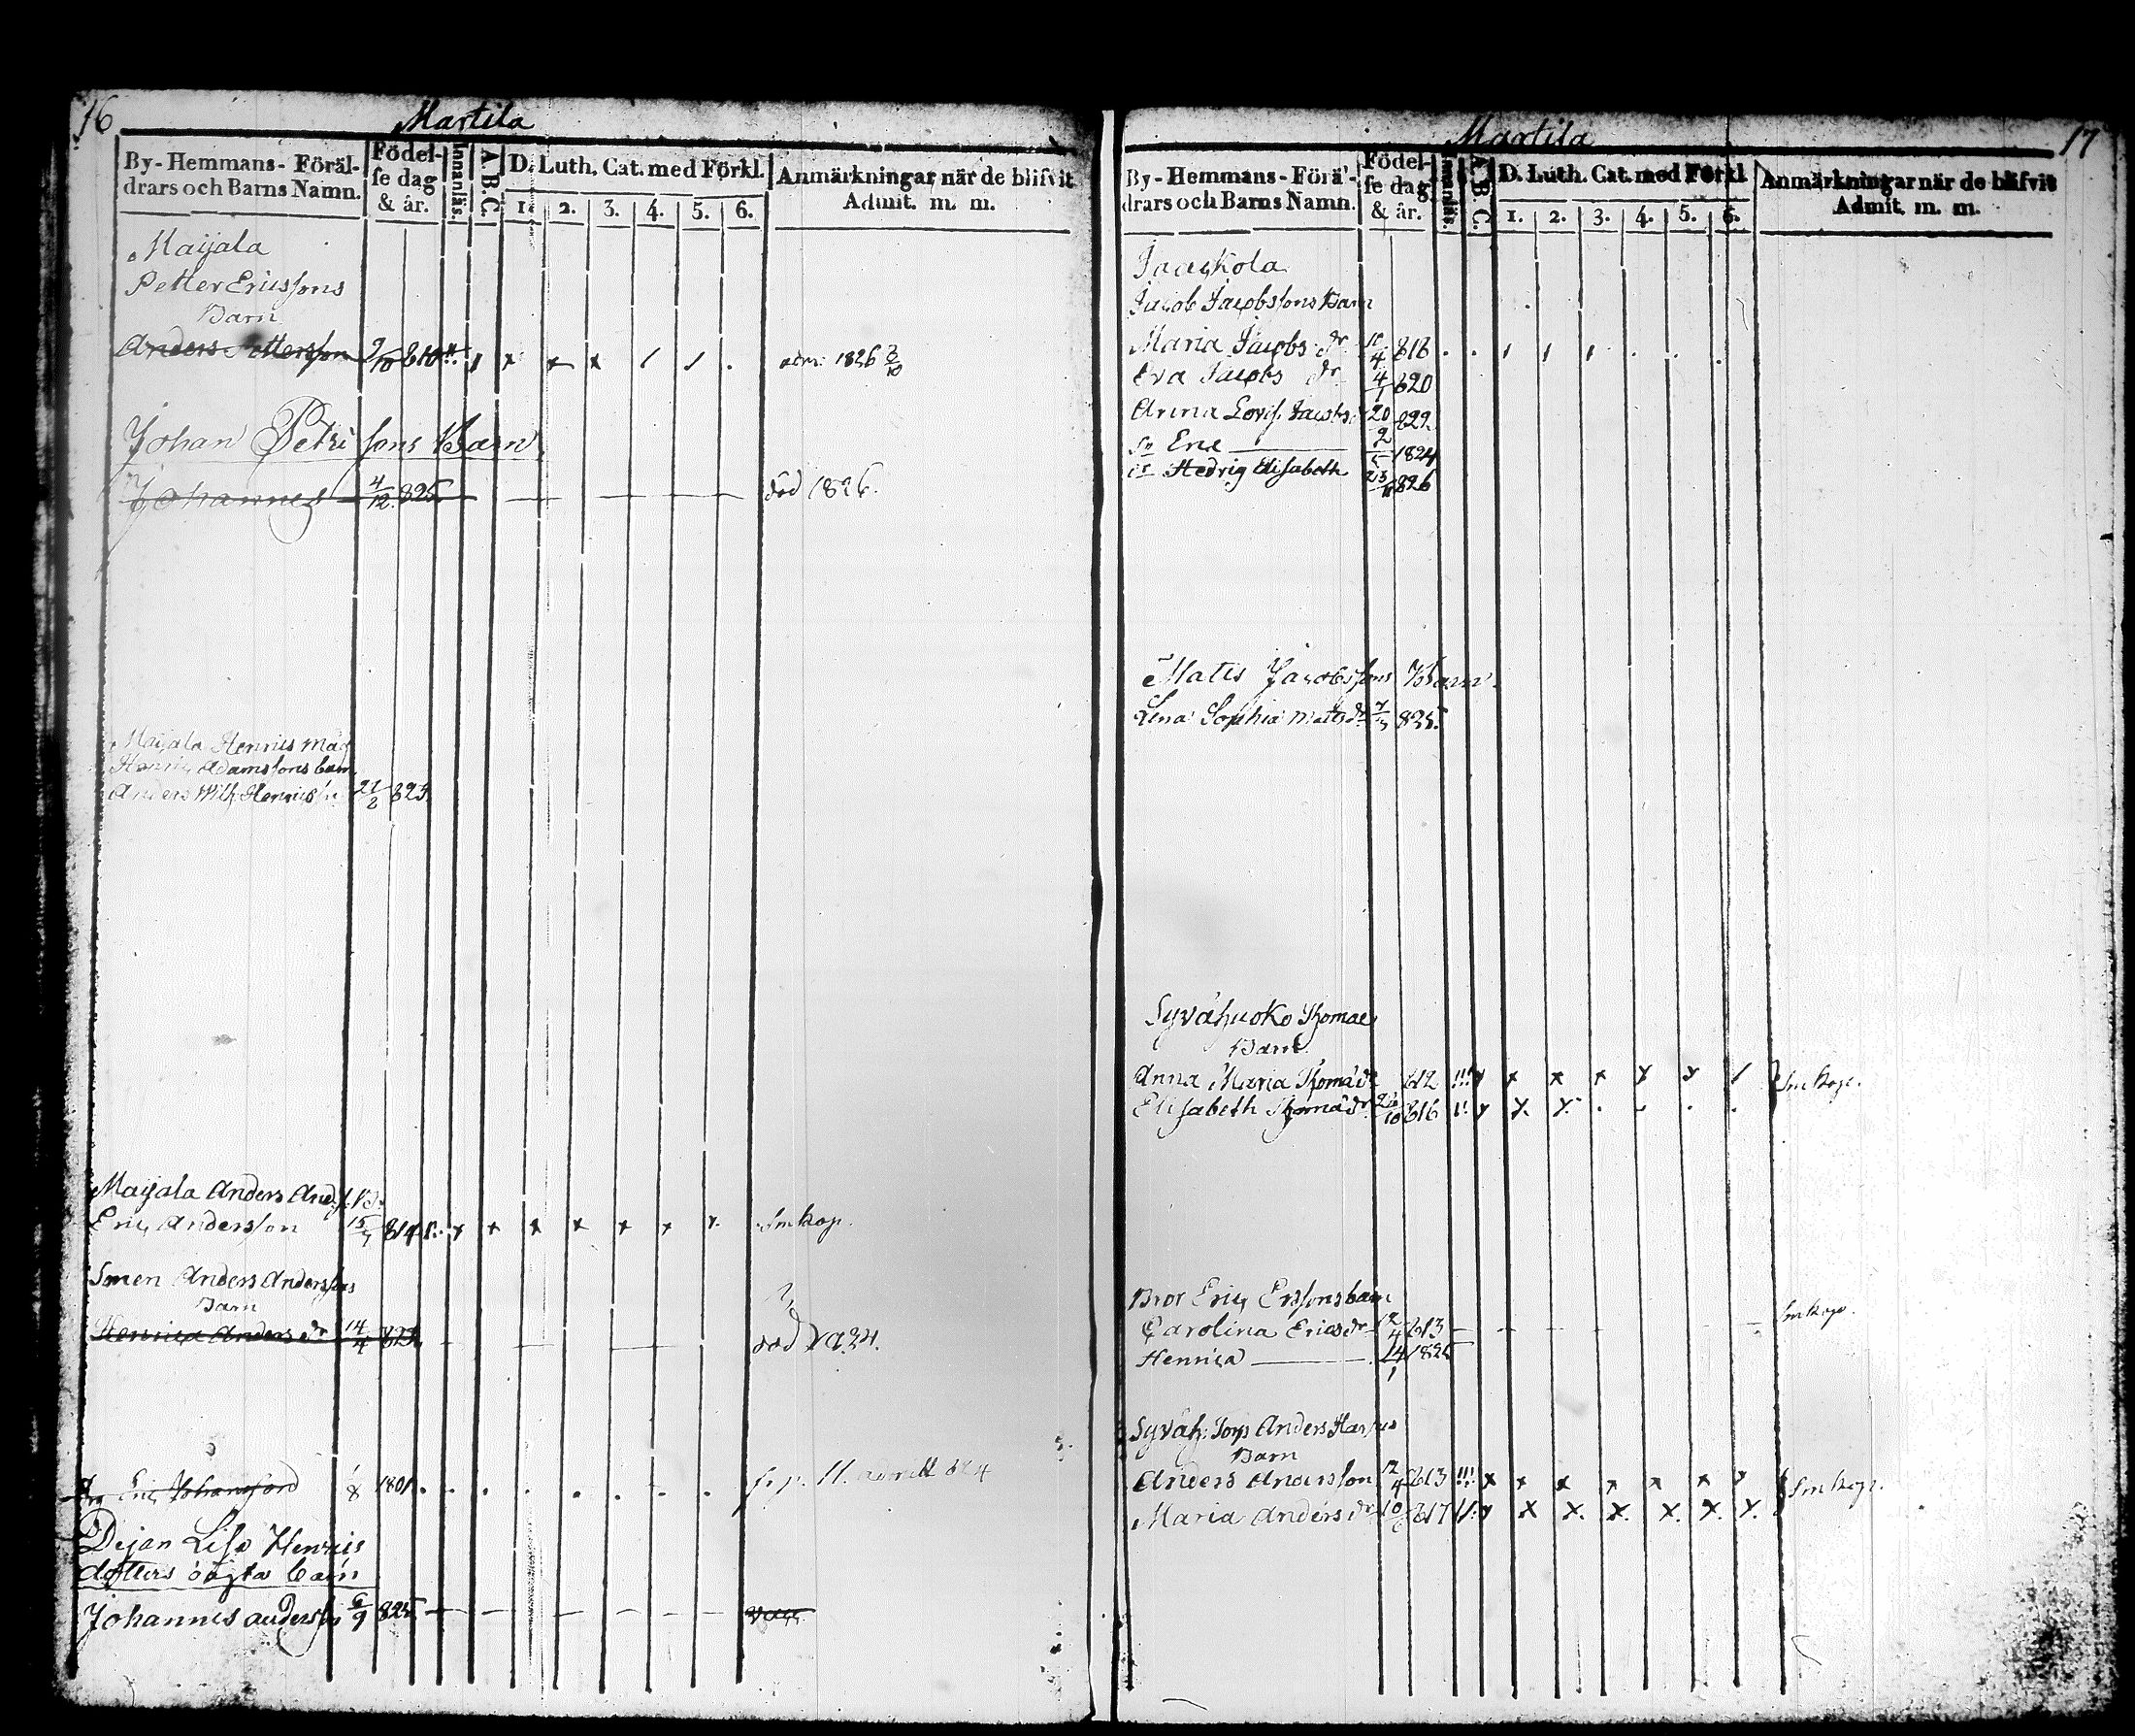 16
Martila
By-Hemmans-Föräl-
drars och Barns Namn.
Födel-
se dag
& år.
Innanläs.
A. B. C.
D. Luth. Cat. med Förkl.
1. 2. 3. 4. 5. 6.
Anmärkningar när de blifvit
Admit. m. m.
Maijala
Petter Ericssons
Barn
Anders Pettersson 810 x x x adm. 1826
Johan Petri sons Barn
Johannes 4/12 825 död 1826.
Maijala Henrics måg
Henric Adamssons barn
Anders Wilh. Henricss 823
Maijala Anders And. s. B.
Eric Andersson 15 814 x x x x x x x Smkop.
Smen Anders Anderssons
Barn
Henrica Anders dr 14/4 död
Eric Johansson 1/8 1801
Dejan Lisa Henrics
dotters oägta barn
Johannes anderson 6/9 825
Martila
17
By-Hemmans-Förä'-
drars och Barns Namn.
Födel-
se dag
& år.
Innanläs.
A. B. C.
D. Luth. Cat. med Förkl
1. 2. 3. 4. 5. 6.
Anmärkningar när de blifvit
Admit. m. m.
Jaackola
Jacob Jacobssons Barn
Maria Jacobs dr 818
Eva Jacobs dr 4/1 820
Anna Lovis. Jacobs 20 822
sn Eric 2 1824
dr Hedvig Elisabeth 23 826
Matts Jacobssons Barn.
Lena Sophia Matts dr 825.
Syvähuoko Thomae
Barn
Anna Maria Thomæ dr 812 !!! x x x x x x Smkop.
Elisabeth Thomæ dr 10 816 x x x
Bror Eric Erssons barn
Carolina Erics dr 12/4 813 Smkop.
Henrica 14/1 1825
Syväh. Torp Anders
Barn
Anders Andersson 12/4 813 !!! x x x x x x x Smkop.
Maria Anders dr 10 817 x x x x x x x